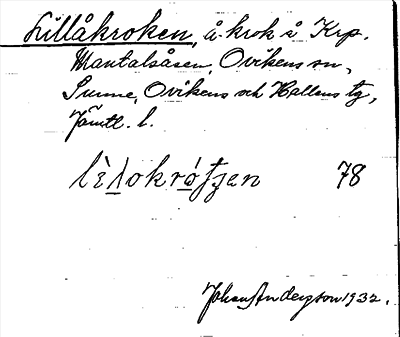 Lillåkroken, å-krok i Krp.
Mantalsåsen, Ovikens sn,
Sunne, Ovikens och Hallens tg,
Jämtl. l.
78
Johan Anderson 1932.